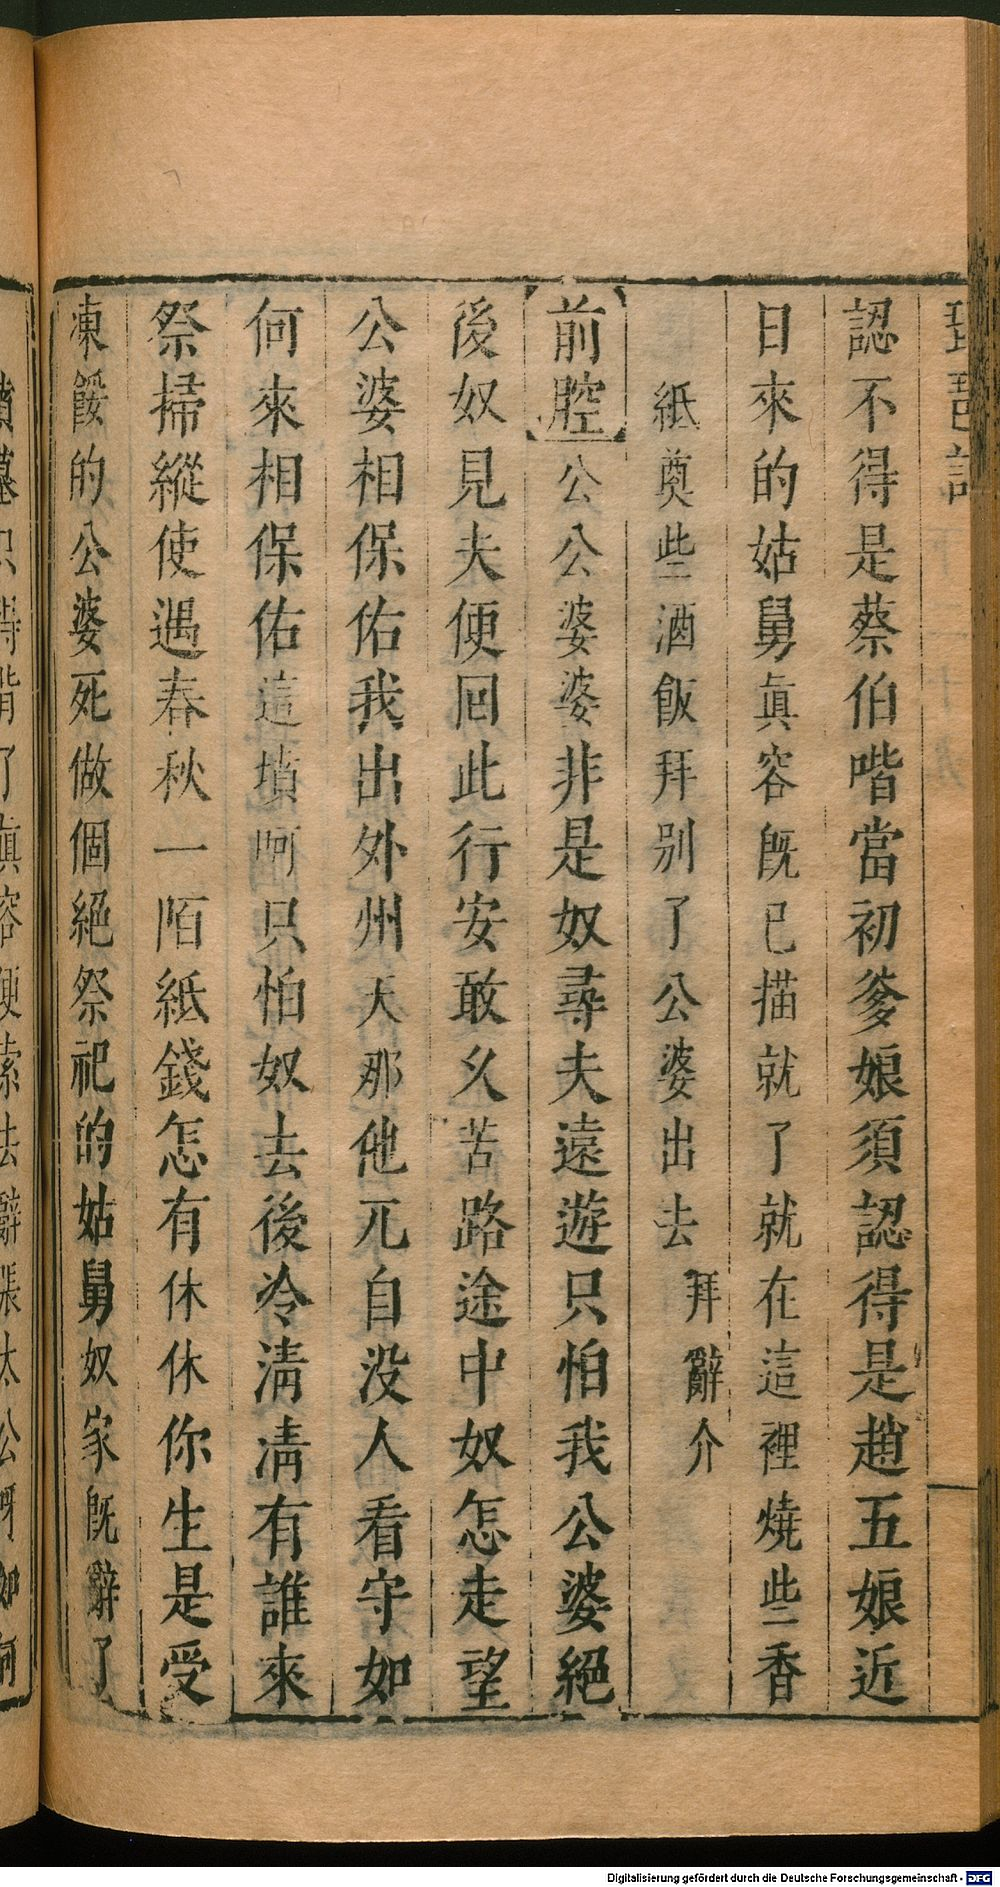 琵琶記
認不得是蔡伯喈當初爹娘須認得是趙五娘近
日來的姑舅眞容旣已描就了就在這裡燒些香
紙奠些酒飯拜別了公婆出去拜辭介
前腔公公婆婆非是奴尋夫遠遊只怕我公婆絕
後奴見夫便囘此行安敢久苦路途中奴怎走望
公婆相保佑我出外州天那他兀自没人看守如
何來相保佑這墳呵只怕奴去後冷淸淸有誰來
祭掃縱使遇春秋一陌紙錢怎有休休你生是受
凍餒的公婆死做個絕祭祀的姑舅奴家旣辭了
墳墓只得背了眞容便索去辭張太公呀如何
Digitalisierung gefördert durch die Deutsche Forschungsgemeinschaft - DFG